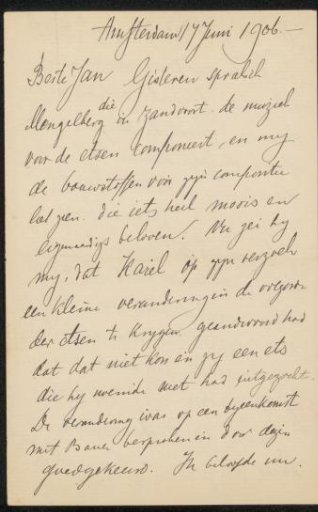 Amsterdam 17 Juni 1906.—
Beste Jan Gisteren sprak ik
Mengelberg die in Zandvoort de muziek
voor de etsen componeert, en my
de bouwstoffen voor zyn compositie
liet zien. die iets heel moois en
eigenaardigs beloven. Nu zei hy
my, dat Karel op zyn verzoek
een kleine verandering in de volgorde
der etsen te krygen geantwoord had
dat dat niet kon en zy een ets
die hy wenschte niet had uitgezocht.
De verandering was op een byeenkomst
met Bauer besproken en door dezen
goedgekeurd. Ik beloofde nu